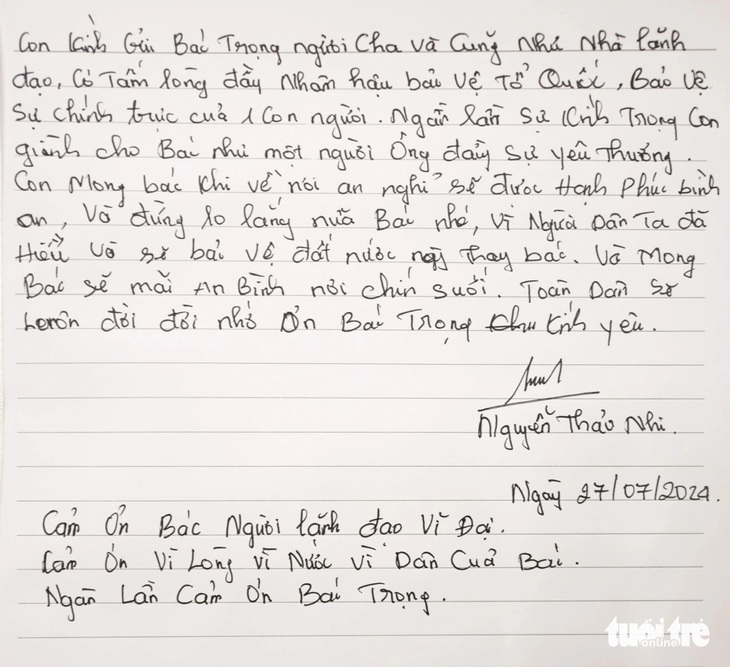 Con Kính Gửi Bác Trọng người Cha và Cũng Như Nhà lãnh
đạo, Có Tấm lòng đầy Nhân hậu bảo Vệ Tổ Quốc, Bảo Vệ
Sự chính trực của 1 Con người. Ngàn lần Sự Kính Trọng Con
giành cho Bác như một người Ông đầy Sự yêu Thương.
Con Mong bác Khi về nơi an nghỉ sẽ được Hạnh Phúc bình
an, Và đừng lo lắng nữa Bác nhé, Vì Người Dân Ta đã
Hiểu Và sẽ bảo Vệ đất nước này thay bác. Và Mong
Bác sẽ mãi An Bình nơi chín suối. Toàn Dân sẽ
Luôn đời đời nhớ Ơn Bác Trọng Kính yêu.
Nguyễn Thảo Nhi.
Ngày 27/07/2024.
Cảm Ơn Bác Người lãnh đạo Vĩ Đại.
Cảm Ơn Vì Lòng Vì Nước Vì Dân Của Bác.
Ngàn Lần Cảm Ơn Bác Trọng.
tuổi trẻ
online